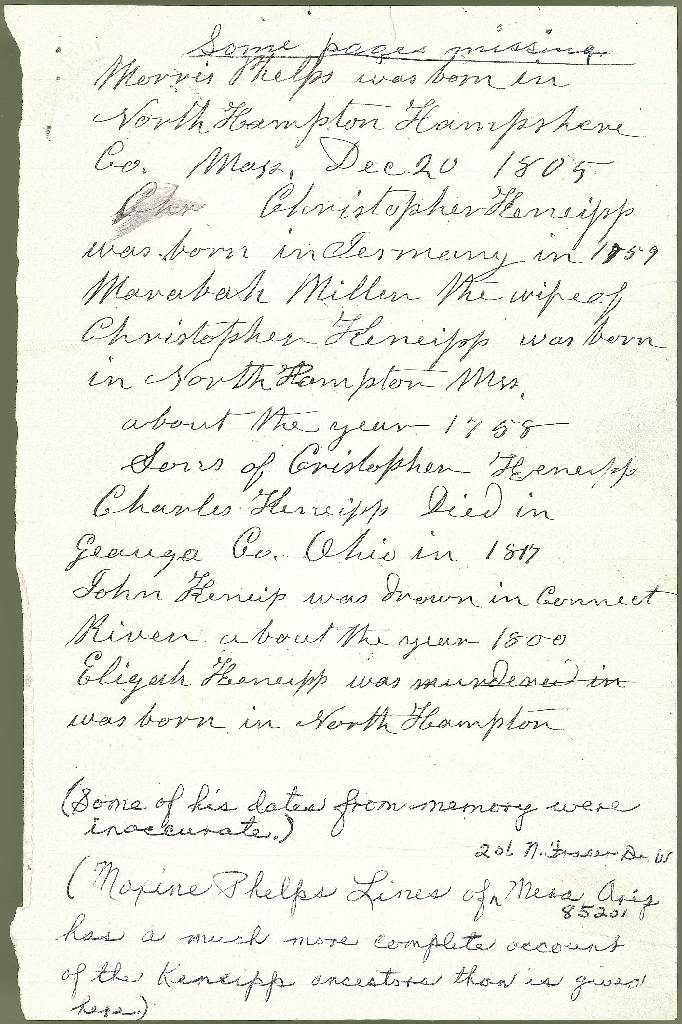 Some pages missing
Morris Phelps was born in
North Hampton Hampshere
Co. Mass. Dec 20 1805
Chr Christopher Keneipp
was born in Germany in 1759
Marabah Miller the wife of
Christopher Keneipp was born
in North Hampton Mss.
about the year 1758
Sons of Cristopher Keneipp
Charles Keneipp Died in
Geauga Co. Ohio in 1817
John Keneip was drown in Connect
River about the year 1800
Eligah Keneipp was murdered in
was born in North Hampton
(Some of his dates from memory were
inaccurate.)
206 N. Fraser Dr. W
(Maxine Phelps Lines of Mesa Ariz
85201
has a much more complete account
of the Keneipp ancestors than is given
here.)